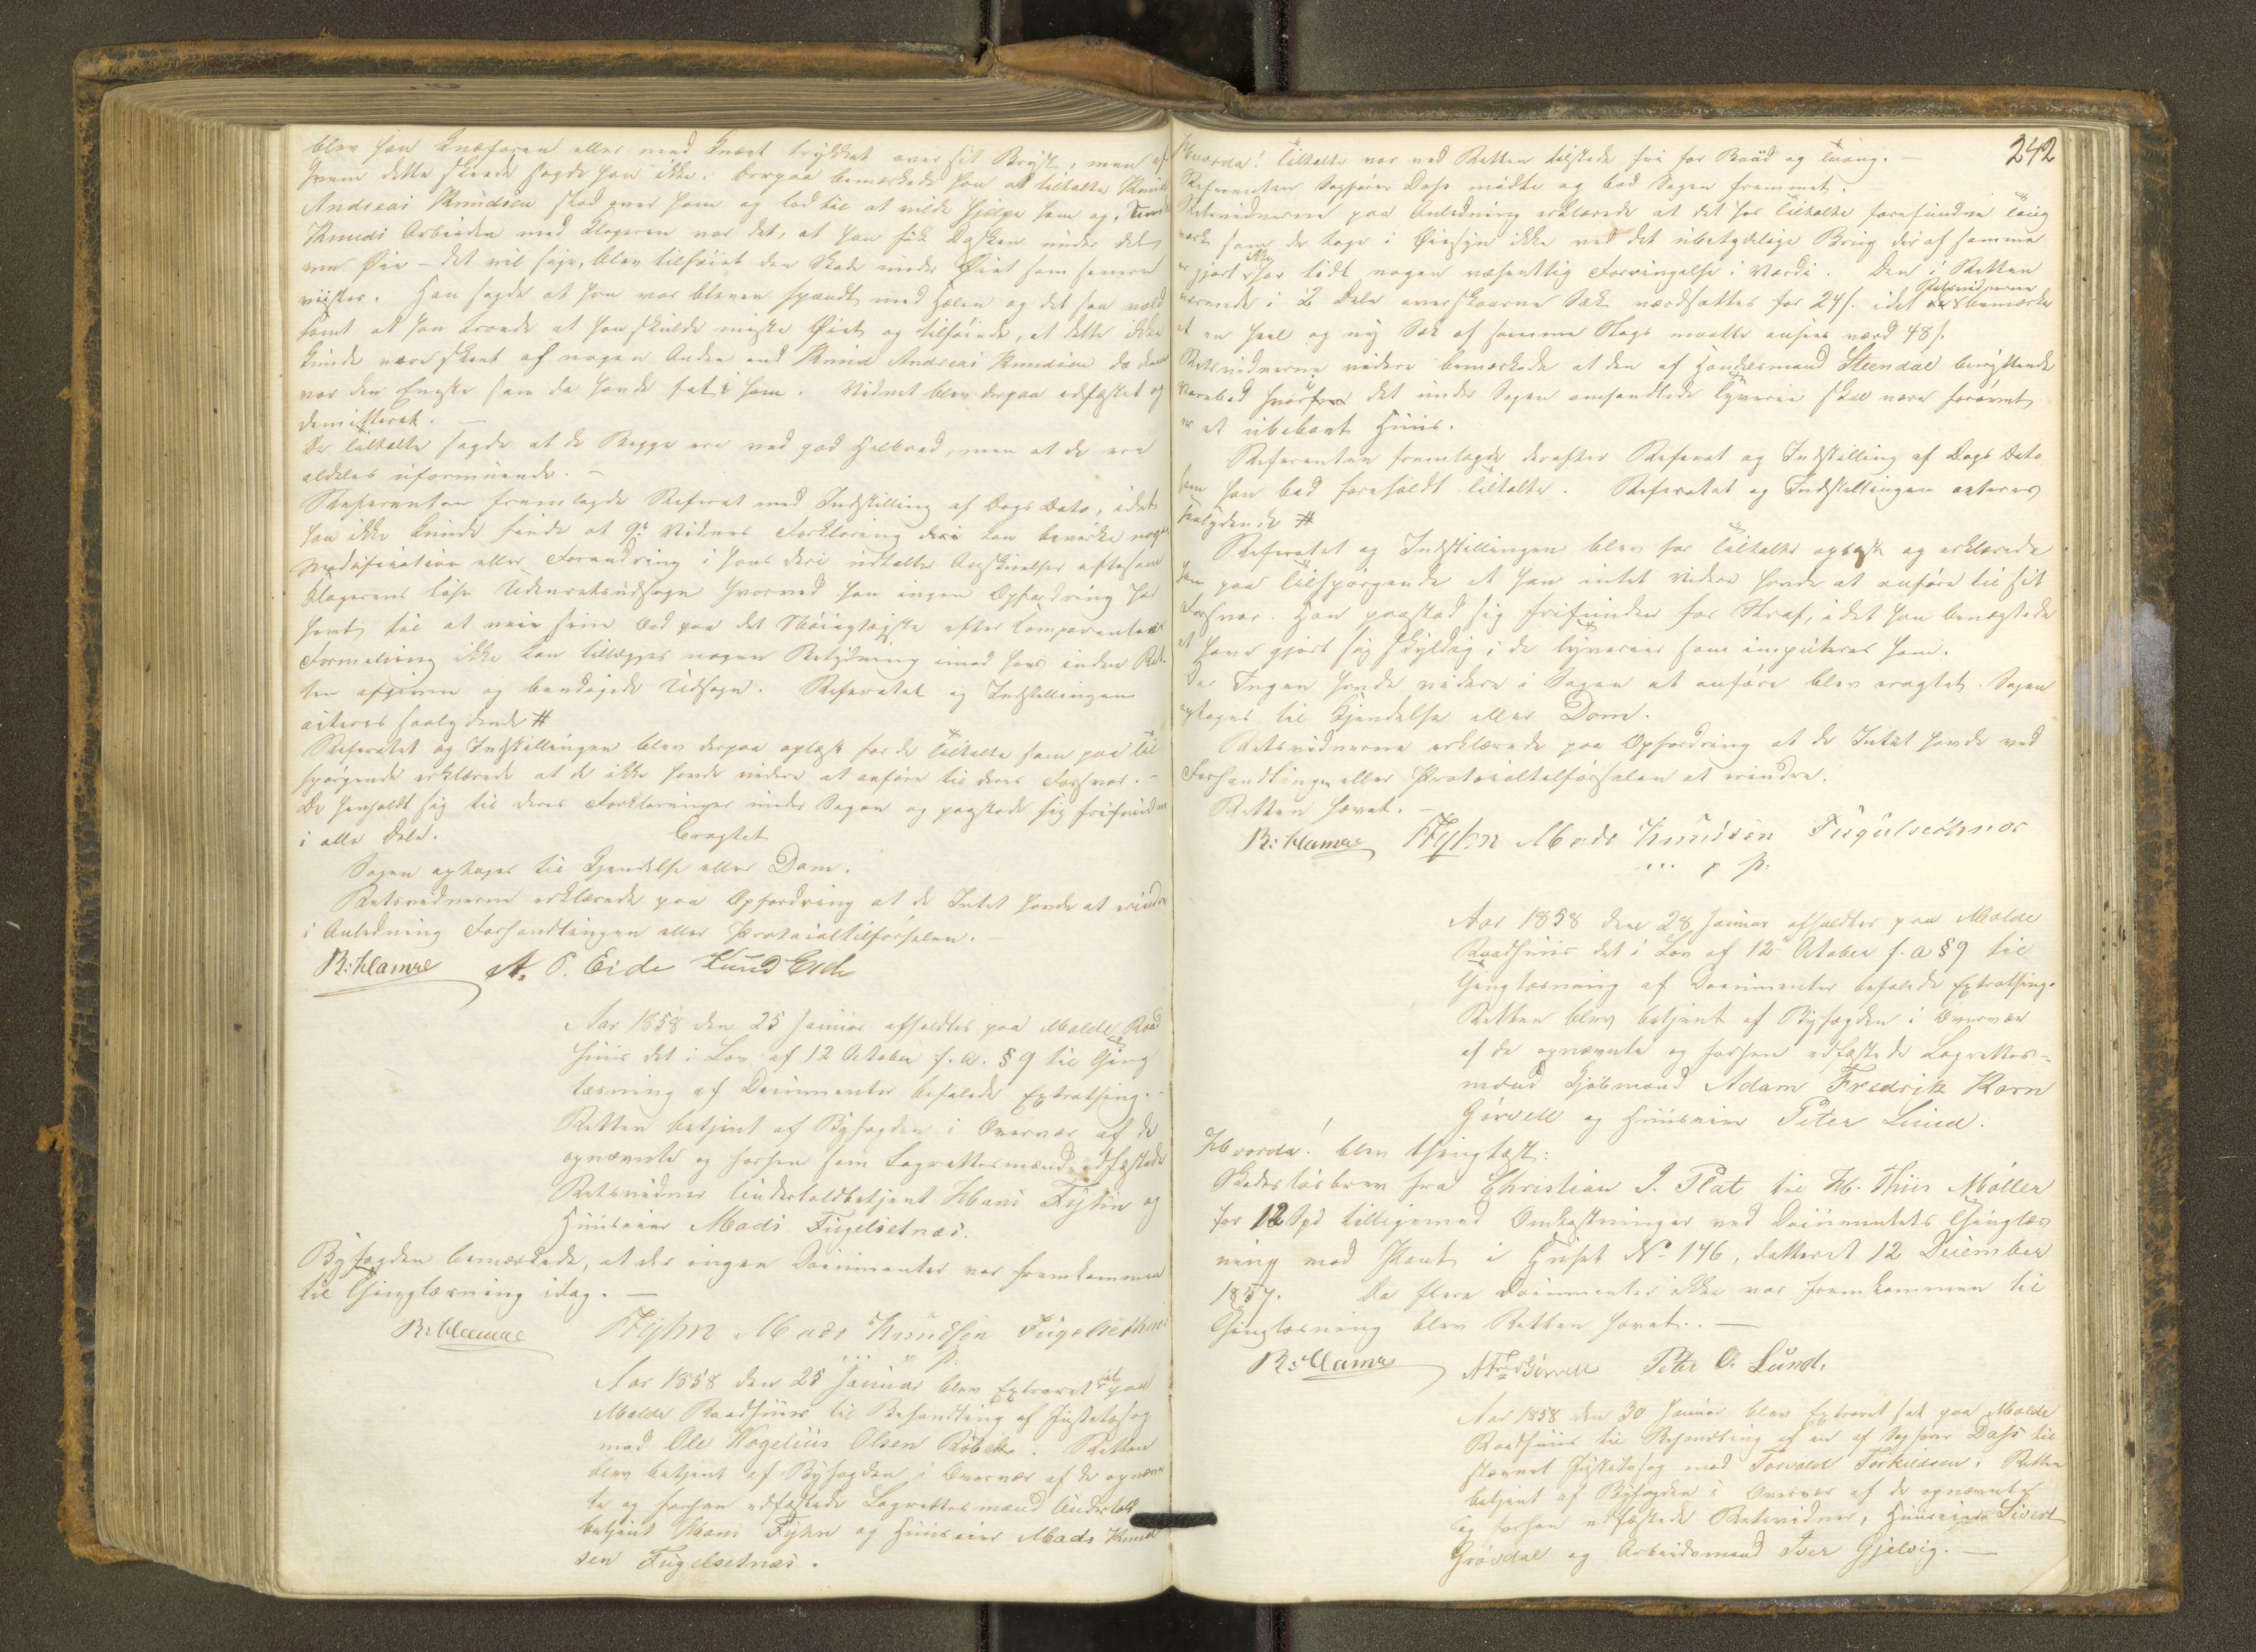 blev han knæfaren eller med Knæet trykket over sit Bryst, men af
hvem dette skeede sagde han ikke. Derpaa bemærkede han at tiltalte Knud
Andreas Knudsen stod over ham og lod til at vilde hjelpe ham og, under
Knuds Arbeiden med Klageren var det, at han fik Dasken under det
ene Øie – det vil sige, blev tilføiet den Skade under Øiet som senere
viistes. Han sagde at han var bleven spændt med Hælen og det saa vold
somt at han troede at han skulde miste Øiet og tilføiede, at dette ikke
kunde være skeet af nogen Anden end Knud Andreas Knudsen da denne
var den Eneste som da havde fat i ham. Vidnet blev derpaa edfæstet og
demitteret.
De tiltalte sagde at de Begge ere ved god Helbred, men at de ere
aldeles uformuende. –
Referenten fremlagde Referat med Indstilling af Dags Dato, idet
han ikke kunde finde at 9de Vidnes Forklaring deri kan bevirke nogen
Modification eller Forandring i hans deri udtalte Anskuelser eftersom
Klagerens løse Udenretsudsagn hvorved han ingen Opfordring har
havt til at veie sine Ord paa det Nøiagtigste efter Comparentens
Formening ikke kan tillægges nogen Betydning imod hans inden Ret-
ten afgivne og beedigede Udsagn. Referatet og Indstillingen
acteres saalydende #
Referatet og Indstillingen blev derpaa oplæst for de tiltalte som paa Til
spørgende erklærede at de ikke havde videre at anføre til deres Forsvar. –
De henholdt sig til deres Forklaringer under Sagen og paastode sig frifundne
i alle Dele. Eragtet
Sagen optages til Kjendelse eller Dom.
Retsvidnerne erklærede paa Opfordring at de Intet havde at erindre
i Anledning Forhandlingen eller Protocoltilførselen. –
B: Klamre A. P. Eide Lund Eide
Aar 1858 den 25 Januar afholdtes paa Molde Raad
huus det i Lov af 12 October f. A. § 9 til Thing
læsning af Documenter befalede Extrathing. –
Retten betjent af Byfogden i Overvær af de
opnævnte og forhen som Lagrettesmænd edfæstede
Retsvidner Undertoldbetjent Hans Fyhn og
Huuseier Mads Fugelsetnæs.
Byfogden bemærkede, at der ingen Documenter var fremkommen
til Thinglæsning idag. –
B: Klamre HFyhn Mads Knudsen Fugelsethnæs
m p P.
Aar 1858 den 25 Januar blev Extraret sat paa
Molde Raadhuus til Behandling af Justitssag
mod Ole Kogelius Olsen Røbek. Retten
blev betjent af Byfogden i Overvær af de opnævn
te og forhen edfæstede Lagrettesmænd Undertold
betjent Hans Fyhn og Huuseier Mads Knud
sen Fugelsetnæs.
242
Hvorda! Tiltalte var ved Retten tilstede fri for Baand og Tvang. –
Referenten Sagfører Dass mødte og bad Sagen fremmet.
Retsvidnerne paa Anledning erklærede at det hos Tiltalte forefundne Toug
værk som de toge i Øiesyn ikke ved det ubetydelige Brug der af samme
er gjort har lidt nogen væsentlig Forringelse i Værdi. Den i Retten
værende i 2 Dele overskaarne Sæk værdsattes for 24 s. idet Retsvidnerne bemærkede
at en heel og ny Sæk af samme Slags maatte ansees værd 48 s.
Retsvidnerne videre bemærkede at den af Handelsmand Steendal benyttende
Varebod hvorfra det under Sagen omhandlede Tyverie skal være forøvet
er et ubeboet Huus.
Referenten fremlagde derefter Referat og Indstilling af Dags Dato
som han bad foreholdt tiltalte. Referatet og Indstillingen acteres
saalydende #
Referatet og Indstillingen blev for Tiltalte oplæst og erklærede
han paa Tilspørgende at han intet videre havde at anføre til sit
Forsvar. Han paastod sig frifunden for Straf, idet han benægtede
at have gjort sig skyldig i de Tyverier som imputeres ham.
Da Ingen havde videre i Sagen at anføre blev eragtet. Sagen
optages til Kjendelse eller Dom.
Retsvidnerne erklærede paa Opfordring at de Intet havde ved
Forhandlingen eller Protocoltilførselen at erindre.
Retten hævet. –
B: Klamre HFyhn Mads Knudsen Fugelsethnæs
m p P.
Aar 1858 den 28 Januar afholdtes paa Molde
Raadhuus det i Lov af 12 October f. A § 9 til
Thinglæsning af Documenter befalede Extrathing.
Retten blev betjent af Byfogden i Overvær
af de opnævnte og forhen edfæstede Lagrettes-
mænd Kjøbmand Adam Fredrik Korn
Gørvell og Huuseier Peter Lund.
Hvorda! blev thinglæst:
Skadesløsbrev fra Christian J. Plat til H. Thiis Møller
for 12 Spd tilligemed Omkostninger ved Documentets Thinglæs
ning med Pant i Huset No 146, datteret 12 December
1857. Da flere Documenter ikke var fremkommen til
Thinglæsning blev Retten hævet. –
B: Klamre AFKGørvell Peter O. Lund.
Aar 1858 den 30 Januar blev Extraret sat paa Molde
Raadhuus til Behandling af en af Sagfører Dass til
stævnet Justitssag mod Torvald Torkildsen. Retten
betjent af Byfogden i Overvær af de opnævnte
og forhen edfæstede Retsvidner, Huuseier Sivert
Grøvdal og Arbeidsmand Iver Gjelvig. –